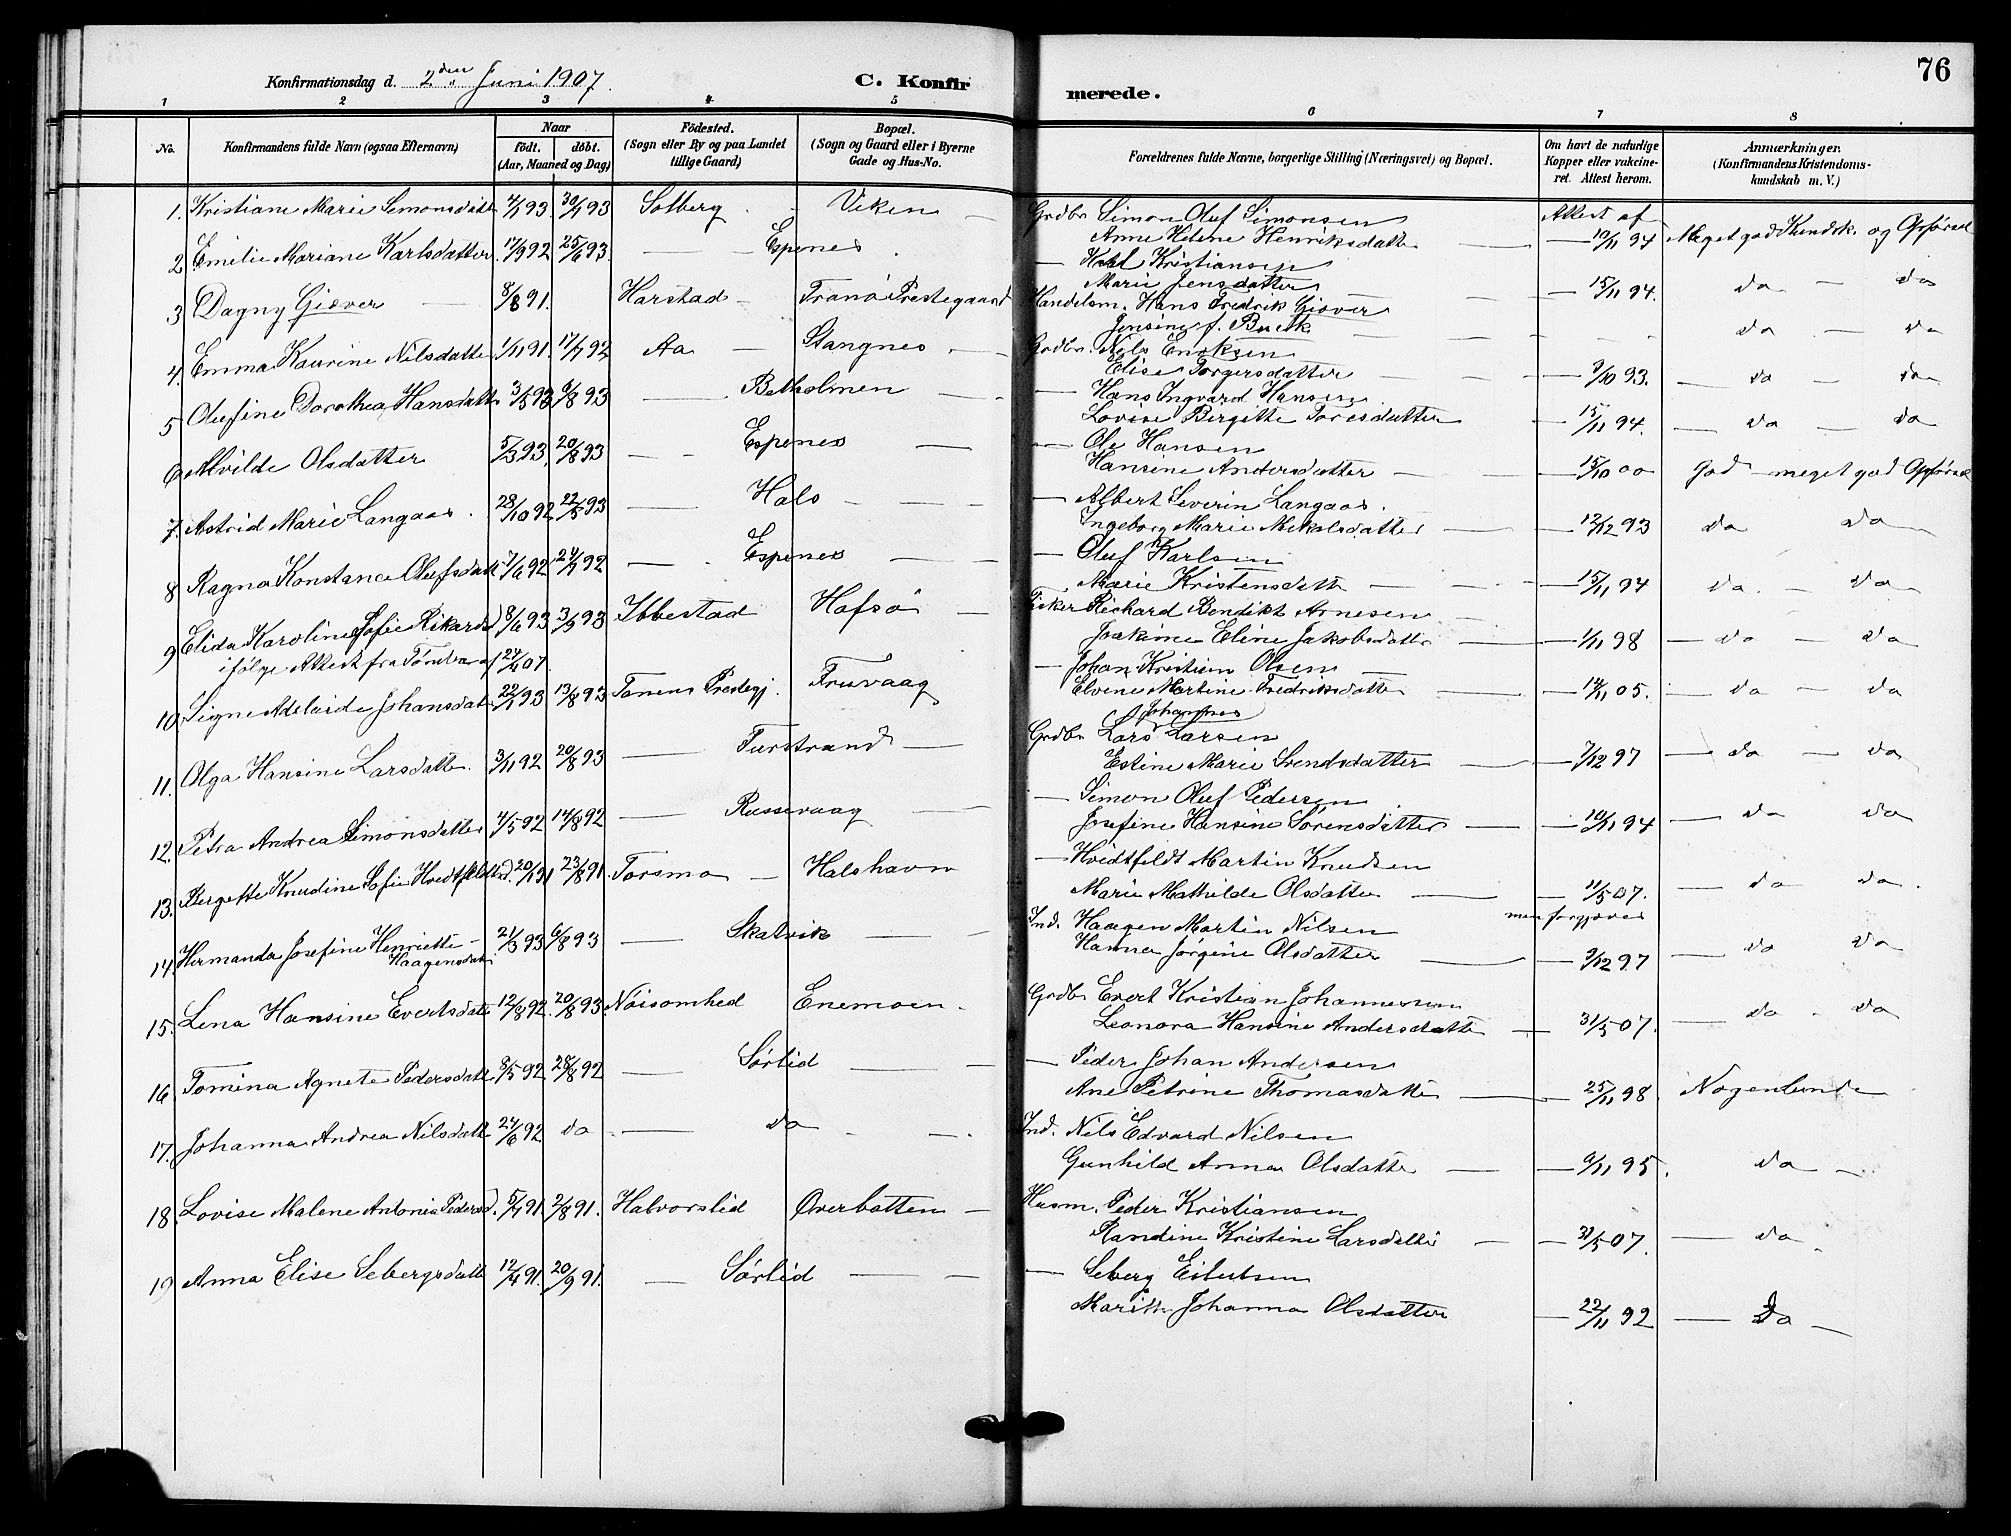 76
Konfirmationsdag d. 2den Juni 1907.
C. Konfirmerede.
1 2 3 4 5 6 7 8
No.
Konfirmandens fulde Navn (ogsaa Efternavn)
Naar
födt. döbt.
(Aar, Maaned og Dag)
Födested.
(Sogn eller By og paa Landet
tillige Gaard)
Bopæl.
(Sogn og Gaard eller i Byerne
Gade og Hus-No.
Forældrenes fulde Navne, borgerlige Stilling (Næringsvei) og Bopæl.
Om havt de naturlige
Kopper eller vakcine-
ret. Attest herom.
Anmærkninger.
(Konfirmandens Kristendoms-
kundskab m. V.)
1. Kristiane Marie Simonsdatt 93 30/7 93 Solberg Viken Grdbr. Simon Oluf Simonsen Attest af
Anne Helene Henriksdatter — 10/11 94 Meget god Kundsk. og Opførsel
2 Emilie Mariane Karlsdatter 17/9 92 25/6 93 — Espenes — Karl Kristiansen
Marie Jensdatter — 15/11 94. do — do
3 Dagny Giæver 8/8 91. Harstad — Tranö Prestegaard Handelsm. Hans Fredrik Giæver
Jensine f. Buck — do — do
4. Emma Kaurine Nilsdatter 1/11 91. 17/7 92 Aa — Stangnes Grdbr. Nils Enoksen
Elise Torgersdatter — 9/10 93. — do — do
5 Olufine Dorothea Hansdatt 3/5 93 6/8 93 — Betholmen — Hans Ingvard Hansen
Lovise Bergitte Toresdatter — 15/11 94. — do — do
6 Alvilde Olsdatter 5/3 93. 20/8 93 — Espenes — Ole Hansen
Hansine Andersdatter — 15/10 00 God — meget god Opførsel
7. Astrid Marie Langaas. 28/10 92 22/5 93 — Hals — Albert Severin Langaas.
Ingeborg Marie Mikalsdatter — 12/12 93 do do
8 Ragna Konstance Olufsdatt 7/6 92 24/7 92 — Espenes — Oluf Karlsen
Marie Kristensdatt — 15/11 94 do. — do
9 Elida Karoline Sofie Rikardsd 8/6 93 3/9 93 Ibbestad Hofsö — Fisker Richard Bendikt Arnesen
ifølge Attest fra
Joakime Eline Jakobsdatter — 1/11 98 — do — do
10. Signe Adelaide Johansdatt 93 13/8 93 Tranens Prestegj. Fruvaag — Johan Kristian Olsen
Elvine Martine Fredriksdatter — 14/11 05. — do — do
11. Olga Hansine Larsdatte. 3/11 92 20/8 93 — Furstrand — Grdbr Lars Johannes Larsen
Estine Marie Svendsdatter — 7/12 97 — do — do
12. Petra Andrea Simonsdatter 4/5 92 14/8 92 — Russevaag — Simon Oluf Pedersen
Josefine Hansine Sørensdatter — 10/11 94 — do do
13. Bergette Knudine Sofie Hvidtfeldtsd. 91 23/8 91. Torsmo — Halshavn — Hvidtfeldt Martin Knudsen
Marie Mathilde Olsdatter — 11/5 07. — do do.
men forgjæves
14. Hermanda Josefine Henriette
Haagensdatt 21/3 93 6/8 93 — Skatvik — Ind. Haagen Martin Nilsen
Hanna Jørgine Olsdatter — 9/12 97 — do do
15. Lena Hansine Evertsdatt 12/8 92. 20/8 93. Nöisomhed Enemoen. Grdbr Evert Kristian Johannesen
Leonora Hansine Andersdatter — 31/5 07. — do do
16. Tomina Agnete Pedersdatt 8/5 92 28/8 92 — Sørlid — Peder Johan Andersen
Ane Petrine Thomasdatter — 25/11 98. Nogenlunde
17. Johanna Andrea Nilsdatt 24/6 92 do — do — Ind. Nils Edvard Nilsen
Gunhild Anna Olsdatter — 9/11 95. do —
18. Lovise Malene Antonie Pedersd. 5/4 91. 2/8 91. Halvorslid Øverbotten — Husm. Peder Kristiansen
Randine Kristine Larsdatter — 31/5 07. — do
19 Anna Elise Sebergsdatt 12/4 91. 20/9 91. — Sørlid — Seberg Eilertsen
Marith Johanna Olsdatter — 22/11 92 — Do —